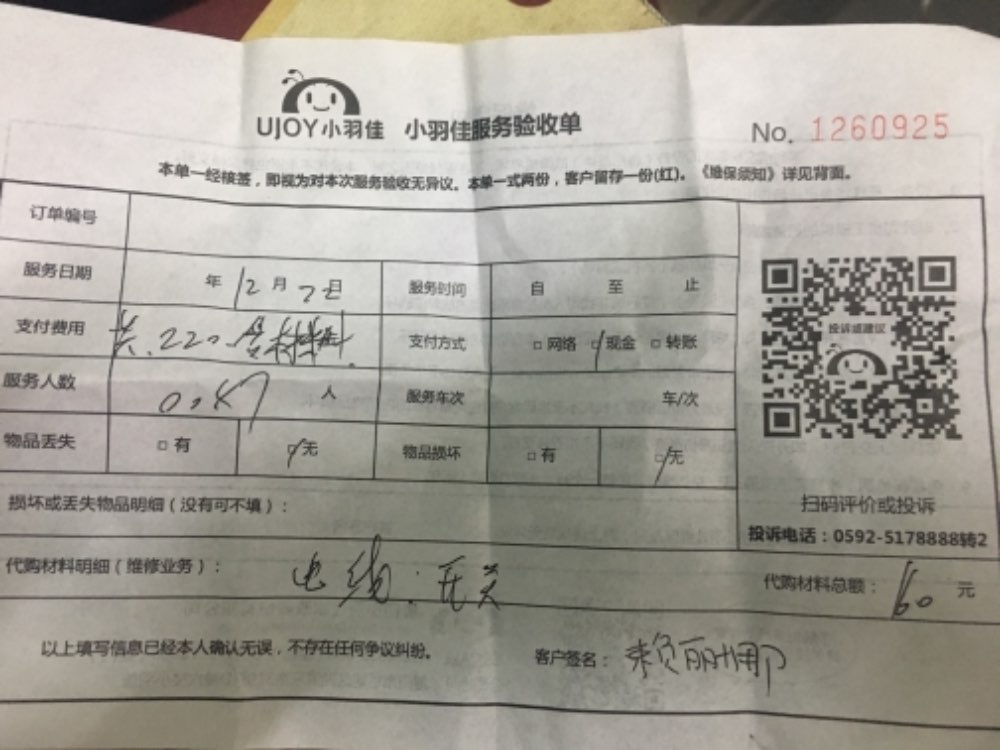 UJOY小羽佳 小羽佳服务验收单 No. 1260925
本单一经核签，即视为对本次服务验收无异议。本单一式两份，客户留存一份(红)。《维保须知》详见背面。
订单编号
服务日期 年 12 月 日 服务时间 自 至 止
支付费用 共.220 含材料 支付方式 □网络 □现金 □转账
服务人数 人 服务车次 车/次
物品丢失 □有 □无 物品损坏 □有 □无
投诉或建议
扫码评价或投诉
投诉电话：0592-5178888转2
损坏或丢失物品明细（没有可不填）：
代购材料明细（维修业务）： 电线. 开关 代购材料总额： 60 元
以上填写信息已经本人确认无误，不存在任何争议纠纷。 客户签名： 赖丽娜